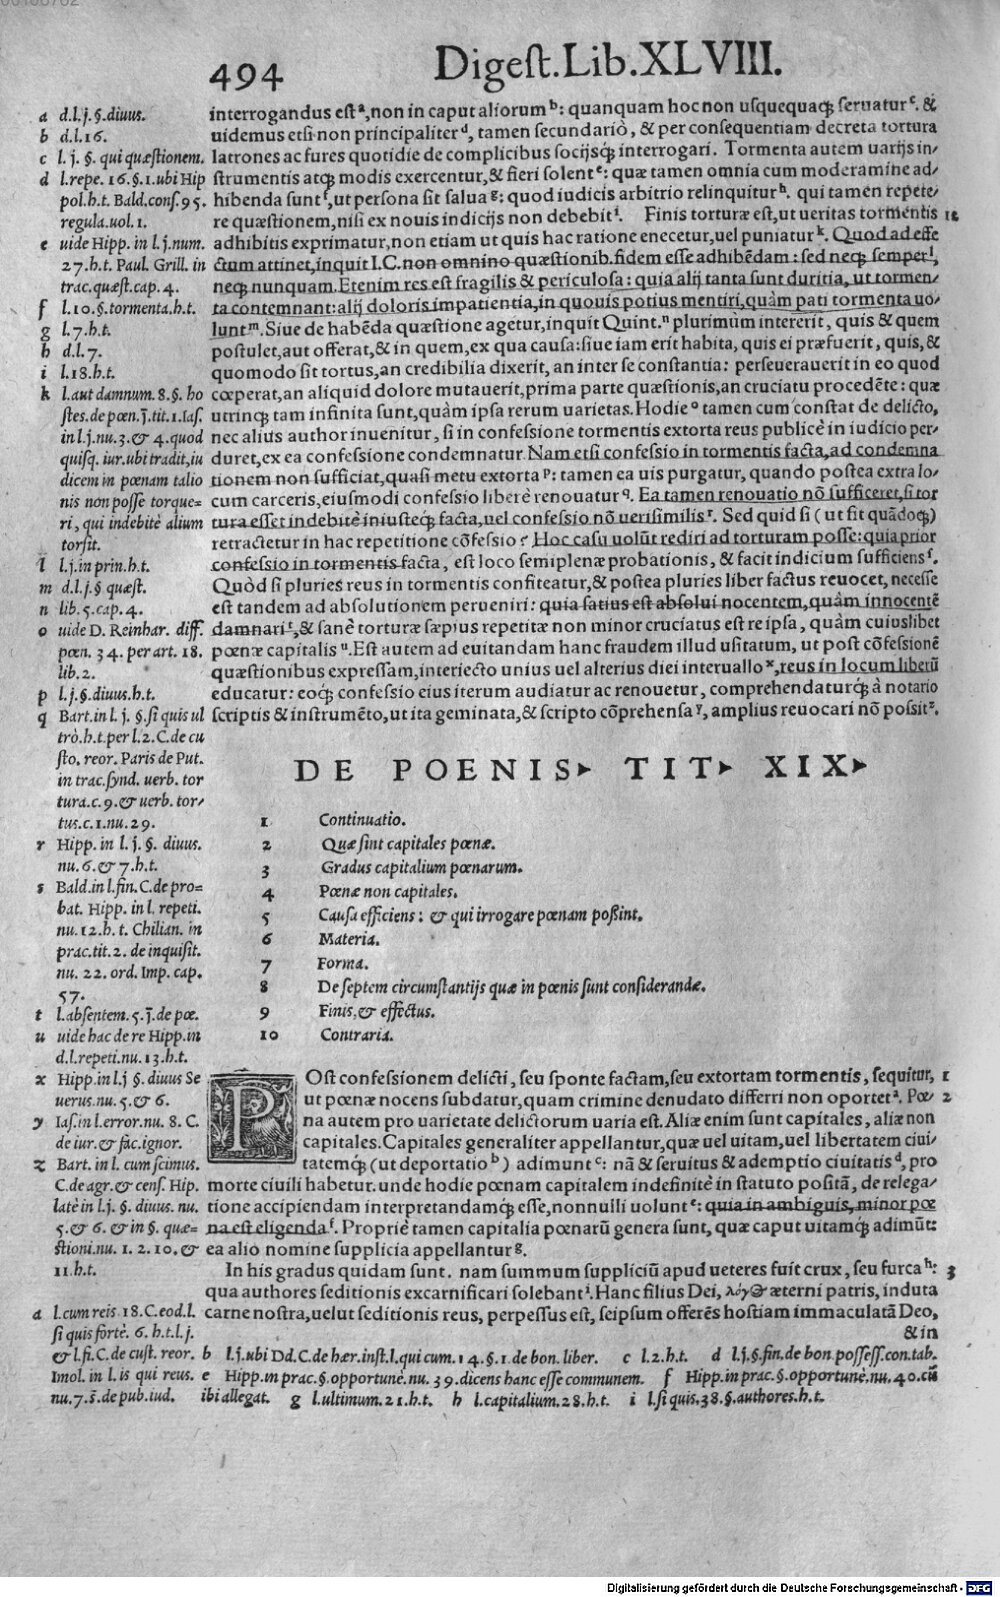 494 Digeſt.Lib.XLVIII.
interrogandus eſt ᵃ, non in caput aliorum ᵇ: quanquam hoc non uſquequaq; ſeruatur ᶜ. &
uidemus etſi non principaliter ᵈ, tamen ſecundariò, & per conſequentiam decreta tortura
latrones ac fures quotidie de complicibus ſocijsq; interrogari. Tormenta autem uarijs in-
ſtrumentis atq; modis exercentur, & fieri ſolent ᵉ: quæ tamen omnia cum moderamine ad-
hibenda ſunt ᶠ, ut perſona ſit ſalua ᵍ: quod iudicis arbitrio relinquitur ʰ. qui tamen repete-
re quæſtionem, niſi ex nouis indicijs non debebit ⁱ. Finis torturæ eſt, ut ueritas tormentis 11
adhibitis exprimatur, non etiam ut quis hac ratione enecetur, uel puniatur ᵏ. Quod ad effe
ctum attinet, inquit I.C. non omnino quæſtionib. fidem eſſe adhibēdam: ſed neq; ſemper ˡ,
neq; nunquam. Etenim res eſt fragilis & periculoſa: quia alij tanta ſunt duritia, ut tormen-
ta contemnant: alij doloris impatientia, in quouis potius mentiri, quàm pati tormenta uo-
lunt ᵐ. Siue de habēda quæſtione agetur, inquit Quint. ⁿ plurimùm intererit, quis & quem
poſtulet, aut offerat, & in quem, ex qua cauſa: ſiue iam erit habita, quis ei præfuerit, quis, &
quomodo ſit tortus, an credibilia dixerit, an inter ſe conſtantia: perſeuerauerit in eo quod
cœperat, an aliquid dolore mutauerit, prima parte quæſtionis, an cruciatu procedēte: quæ
utrinq; tam infinita ſunt, quàm ipſa rerum uarietas. Hodie ᵒ tamen cum conſtat de delicto,
nec alius author inuenitur, ſi in confeſſione tormentis extorta reus publicè in iudicio per-
duret, ex ea confeſſione condemnatur. Nam etſi confeſſio in tormentis facta, ad condemna
tionem non ſufficiat, quaſi metu extorta ᵖ: tamen ea uis purgatur, quando poſtea extra lo-
cum carceris, eiuſmodi confeſſio liberè renouatur q. Ea tamen renouatio nō ſufficeret, ſi tor
tura eſſet indebitè iniuſteq; facta, uel confeſſio nō ueriſimilis ʳ. Sed quid ſi (ut fit quādoq;)
retractetur in hac repetitione cōfeſsio? Hoc caſu uolūt rediri ad torturam poſſe: quia prior
confeſsio in tormentis facta, eſt loco ſemiplenæ probationis, & facit indicium ſufficiens ˢ.
Quòd ſi pluries reus in tormentis confiteatur, & poſtea pluries liber factus reuocet, neceſſe
eſt tandem ad abſolutionem perueniri: quia ſatius eſt abſolui nocentem, quàm innocentē
damnari ᵗ, & ſanè torturæ ſæpius repetitæ non minor cruciatus eſt re ipſa, quàm cuiuslibet
pœnæ capitalis ᵘ. Eſt autem ad euitandam hanc fraudem illud uſitatum, ut poſt cōfeſsionē
quæſtionibus expreſſam, interiecto unius uel alterius diei interuallo ˣ, reus in locum liberū
educatur: eoq; confeſsio eius iterum audiatur ac renouetur, comprehendaturq; à notario
ſcriptis & inſtrumēto, ut ita geminata, & ſcripto cōprehenſa ʸ, amplius reuocari nō poſsit ᶻ.
a d.l.j.§.diuus.
b d.l.16.
c l. j. §. qui quæſtionem.
d l.repe. 16.§.1.ubi Hip
pol.h.t. Bald.conſ.95.
regula.uol.1.
e uide Hipp. in l.j.num.
27.h.t. Paul. Grill. in
trac.quæſt.cap.4.
f l.10.§.tormenta.h.t.
g l.7.h.t.
h d.l.7.
i l.18.h.t.
k l.aut damnum.8.§. ho
ſtes.de pœn.j̄.tit.1.Iaſ.
in l.j.nu.3.& 4.quod
quiſq. iur.ubi tradit, iu
dicem in pœnam talio
nis non poſſe torque=
ri, qui indebitè alium
torſit.
l l.j.in prin.h.t.
m d.l.j.§ quæſt.
n lib.5.cap.4.
o uide D. Reinhar. diff.
pœn. 34. per art. 18.
lib.2.
p l.j.§.diuus.h.t.
q Bart.in l. j. §.ſi quis ul
trò.h.t.per l.2.C.de cu
ſto. reor. Paris de Put.
in trac.ſynd. uerb. tor
tura.c.9.& uerb. tor-
tus.c.1.nu.29.
r Hipp. in l. j. §. diuus.
nu.6.& 7.h.t.
s Bald.in l.fin. C.de pro=
bat. Hipp. in l. repeti.
nu.12.h. t. Chilian. in
prac.tit.2. de inquiſit.
nu. 22. ord. Imp. cap.
57.
t l.abſentem.5.j̄.de pœ.
u uide hac de re Hipp.in
d.l.repeti.nu.13.h.t.
x Hipp.in l.j §. diuus Se
uerus.nu.5.& 6.
y Iaſ.in l.error.nu. 8. C.
de iur.& fac.ignor.
z Bart. in l. cum ſcimus.
C.de agr.& cenſ. Hip.
latè in l.j. §. diuus. nu.
5.& 6. & in §. quæ=
ſtioni.nu. 1. 2. 10. &
11.h.t.
DE POENIS TIT XIX
1 Continuatio.
2 Quæ ſint capitales pœnæ.
3 Gradus capitalium pœnarum.
4 Pœnæ non capitales.
5 Cauſa efficiens: & qui irrogare pœnam poſsint.
6 Materia.
7 Forma.
8 De ſeptem circumſtantijs quæ in pœnis ſunt conſiderandæ.
9 Finis, & effectus.
10 Contraria.
POſt confeſsionem delicti, ſeu ſponte factam, ſeu extortam tormentis, ſequitur, 1
ut pœnæ nocens ſubdatur, quam crimine denudato differri non oportet ᵃ. Pœ- 2
na autem pro uarietate delictorum uaria eſt. Aliæ enim ſunt capitales, aliæ non
capitales. Capitales generaliter appellantur, quæ uel uitam, uel libertatem ciui-
tatemq; (ut deportatio ᵇ) adimunt ᶜ: nā & ſeruitus & ademptio ciuitatis ᵈ, pro
morte ciuili habetur. unde hodie pœnam capitalem indefinitè in ſtatuto poſitā, de relega-
tione accipiendam interpretandamq; eſſe, nonnulli uolunt ᵉ: quia in ambiguis, minor pœ
na eſt eligenda ᶠ. Propriè tamen capitalia pœnarū genera ſunt, quæ caput uitamq; adimūt:
ea alio nomine ſupplicia appellantur ᵍ.
In his gradus quidam ſunt. nam ſummum ſuppliciū apud ueteres fuit crux, ſeu furca ʰ: 3
qua authores ſeditionis excarnificari ſolebant ⁱ. Hanc filius Dei, λόγος æterni patris, induta
carne noſtra, uelut ſeditionis reus, perpeſſus eſt, ſeipſum offerēs hoſtiam immaculatā Deo,
& in
a l.cum reis.18.C.eod.l.
ſi quis fortè. 6. h.t.l.j.
& l.fi.C.de cuſt. reor. b l.j.ubi Dd.C.de hær.inſt.l.qui cum.14.§.1.de bon. liber. c l.2.h.t. d l.j.§.fin.de bon.poſſeſſ.con.tab.
Imol. in l. is qui reus. e Hipp.in prac.§.opportunè.nu. 39.dicens hanc eſſe communem. f Hipp.in prac.§.opportunè.nu.40.cū
nu.7.s̄.de pub.iud. ibi allegat. g l.ultimum.21.h.t. h l.capitalium.28.h.t. i l.ſi quis.38.§.authores.h.t.
Digitalisierung gefördert durch die Deutsche Forschungsgemeinschaft - DFG